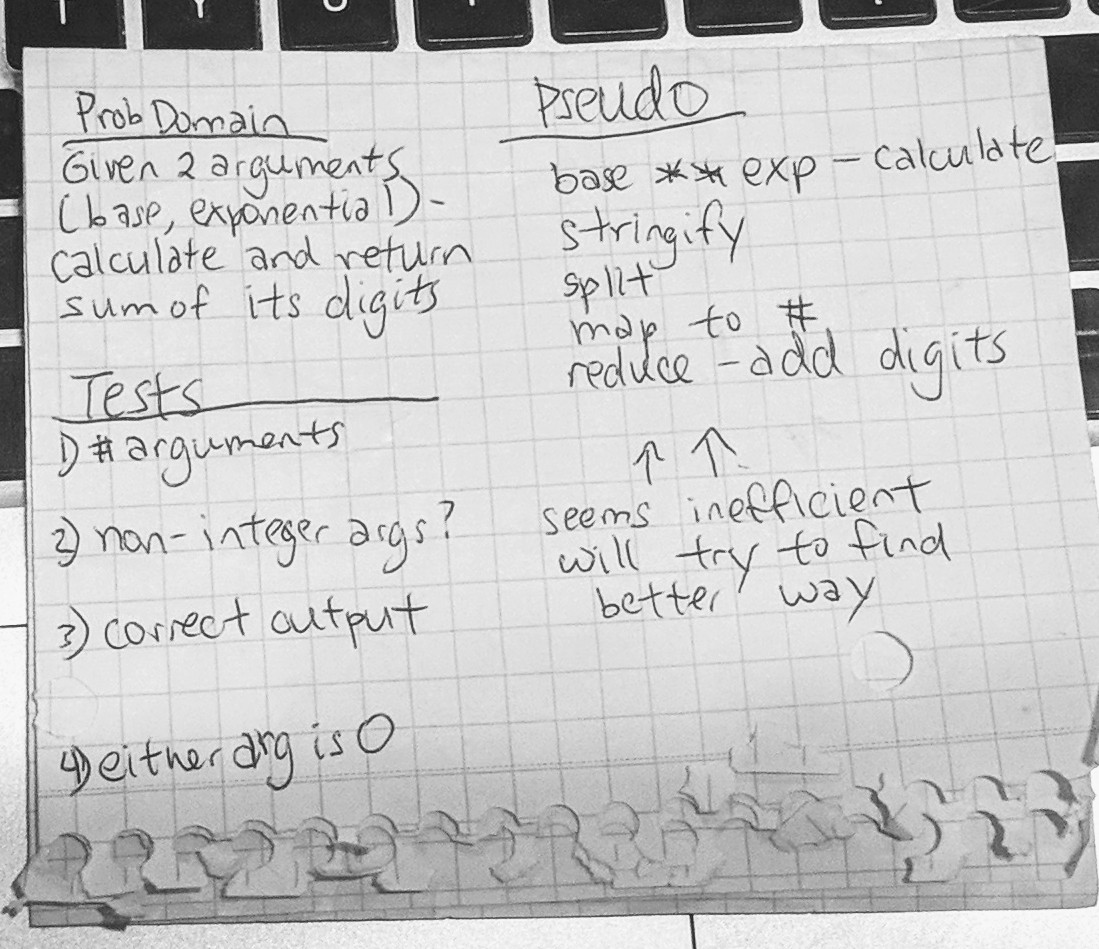 Prob Domain
Given 2 arguments
(base, exponential) -
calculate and return
sum of its digits
Tests
1) # arguments
2) non-integer args?
3) correct output
4) either arg is 0
Pseudo
base ** exp - calculate
stringify
split
map to #
reduce - add digits
↑ ↑
seems inefficient
will try to find
better way